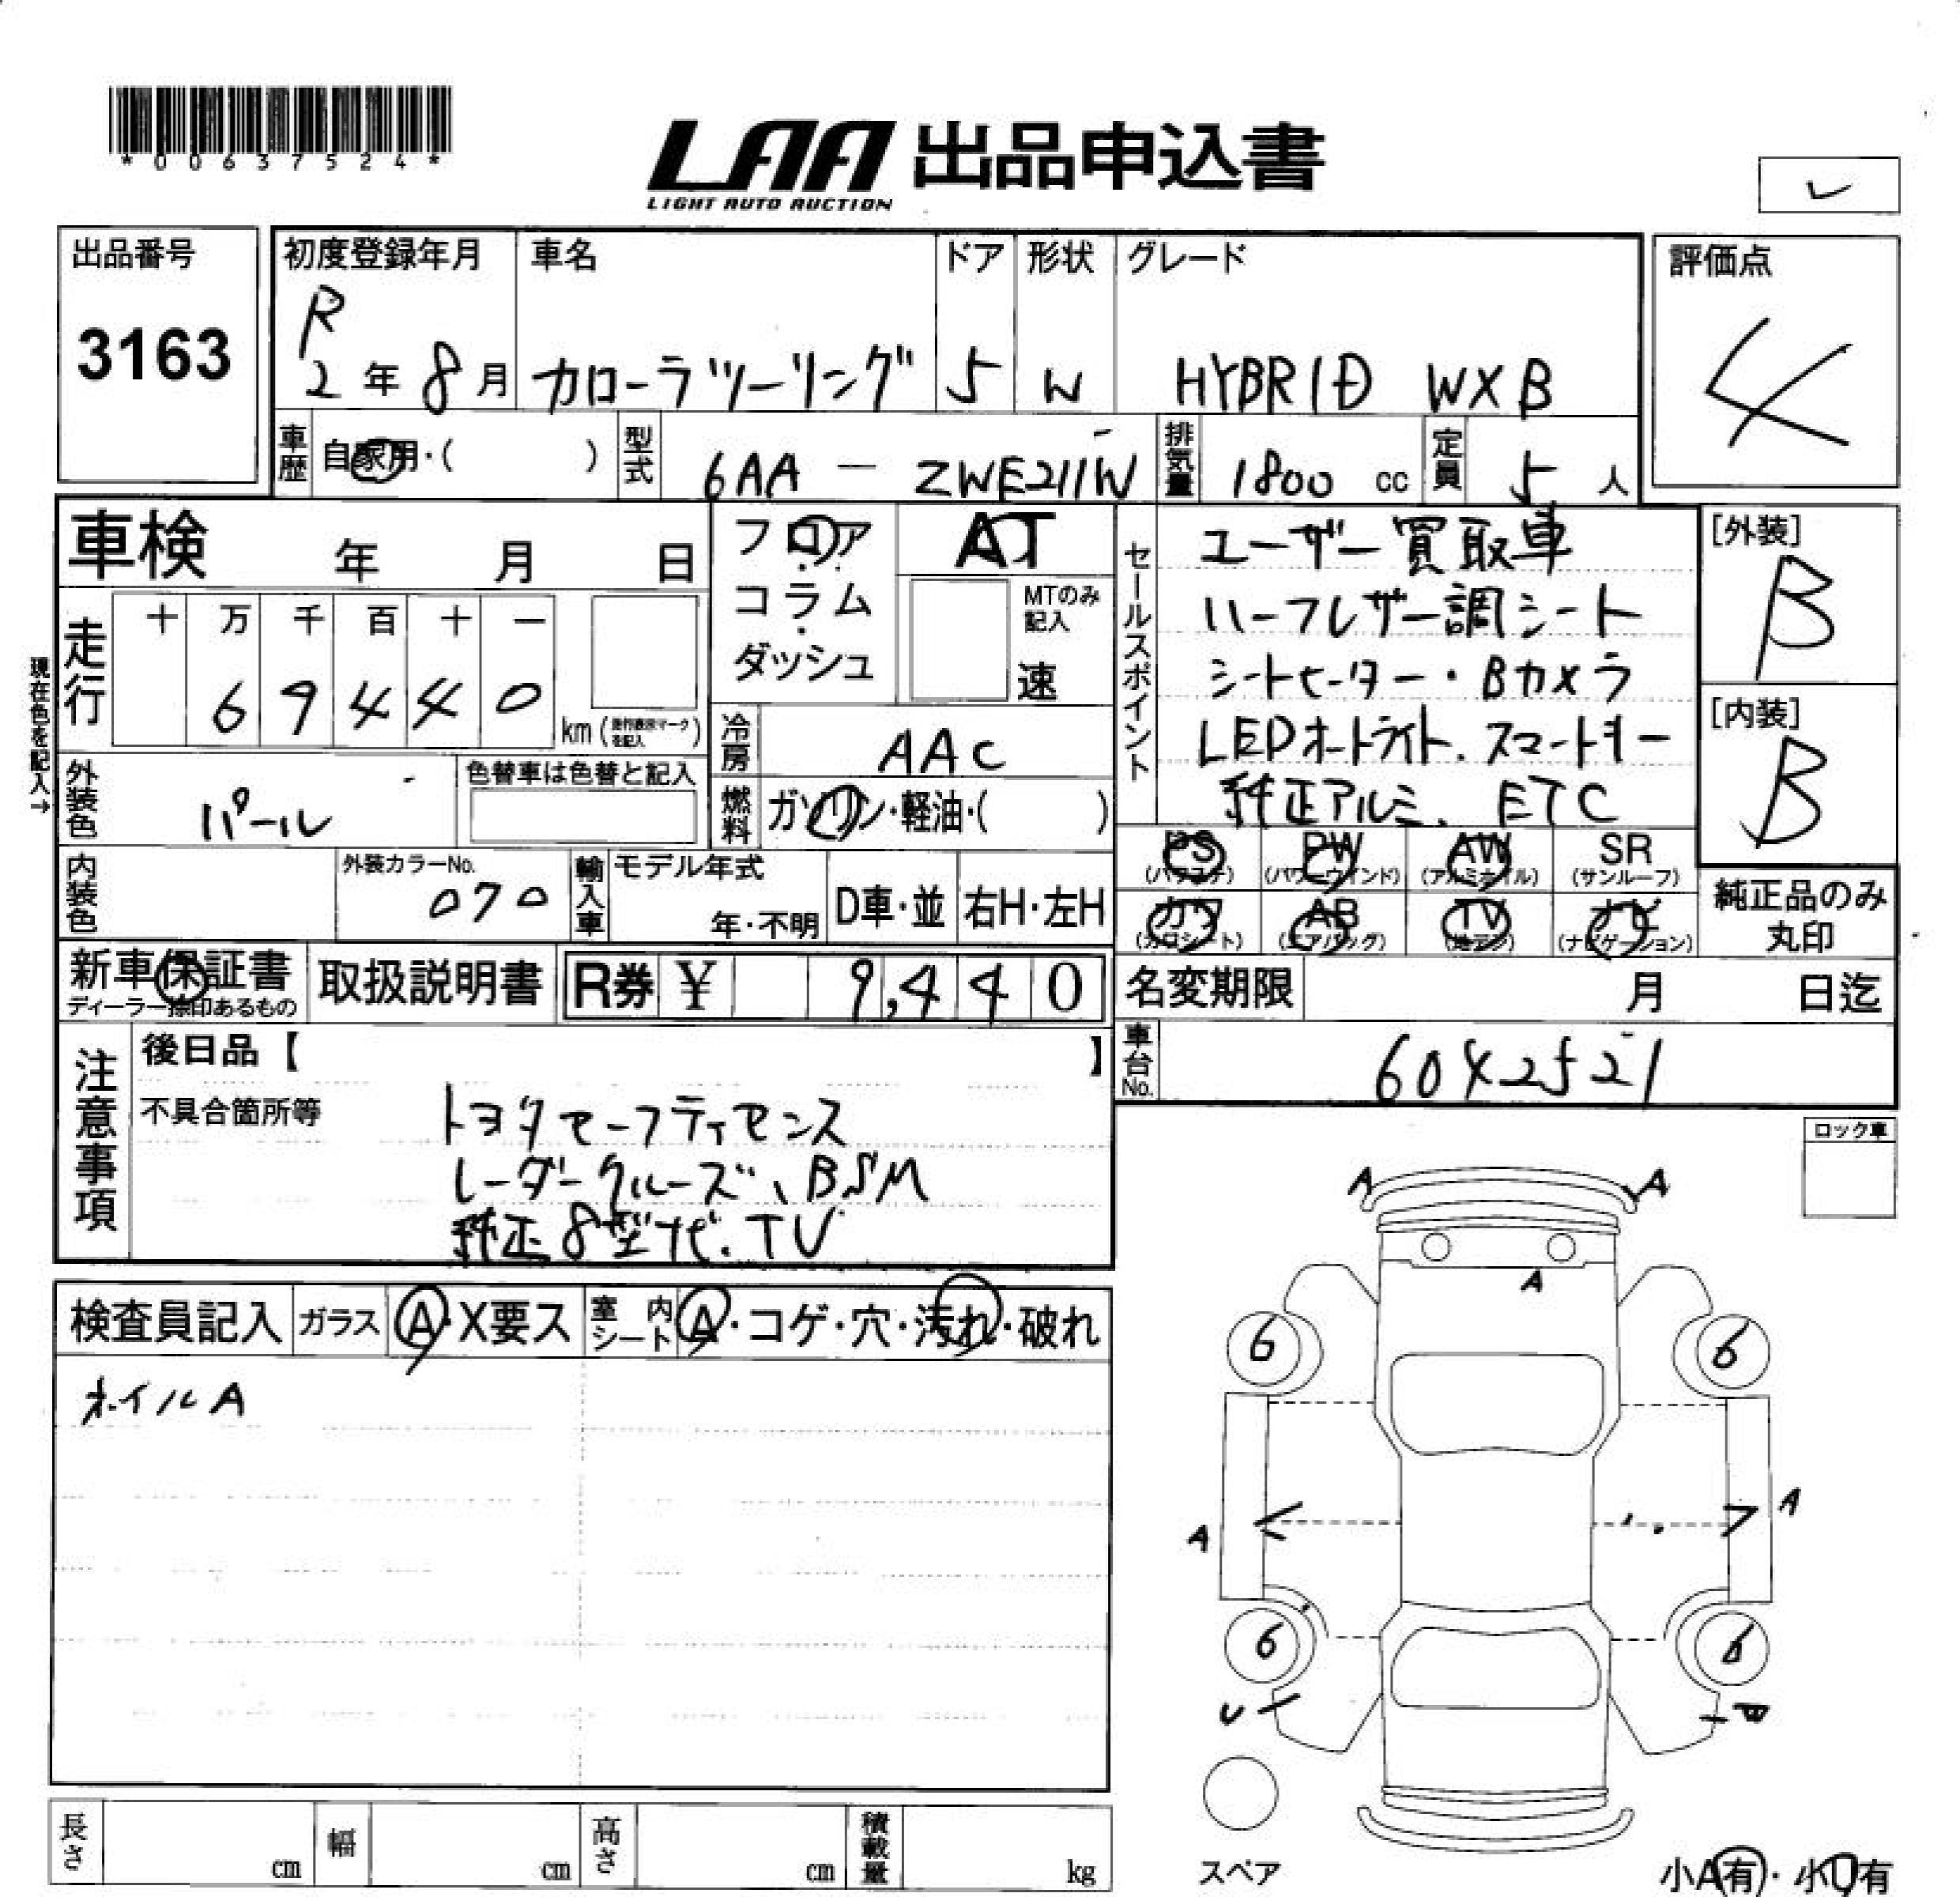 *00637524*
LAA 出品申込書
LIGHT AUTO AUCTION
レ
出品番号
3163
初度登録年月
R
2年8月
車名
カローラツーリング
ドア
5
形状
W
グレード
HYBRID WXB
評価点
4
車歴 自家用・( )
型式 6AA－ZWE211W
排気量 1800 cc
定員 5 人
車検 年 月 日
フロア・コラム・ダッシュ
AT
MTのみ記入
速
セールスポイント
ユーザー買取車
ハーフレザー調シート
シートヒーター・Bカメラ
LEDオートライト、スマートキー
純正アルミ、ETC
[外装]
B
[内装]
B
現在色を記入→
走行
十 万 千 百 十 一
6 9 4 4 0
km (走行表示マークを記入)
冷房 AAC
外装色 パール
色替車は色替と記入
燃料 ガソリン・軽油・( )
PS (パワステ) PW (パワーウインド) AW (アルミホイル) SR (サンルーフ)
カワ (カワシート) AB (エアバッグ) TV (地デジ) ナビ (ナビゲーション)
純正品のみ丸印
内装色
外装カラーNo.
070
輸入車 モデル年式
年・不明
D車・並
右H・左H
新車保証書
ディーラー捺印あるもの
取扱説明書
R券 ¥ 9,440
名変期限 月 日迄
車台No. 6042521
注意事項
後日品【 】
不具合箇所等
トヨタセーフティセンス
レーダークルーズ、BSM
純正8型ナビ、TV
ロック車
検査員記入 ガラス A・X要ス 室内シート A・コゲ・穴・汚れ・破れ
ホイルA
A A
A
6 6
A A
6 6
U
スペア
小A有・小U有
長さ cm 幅 cm 高さ cm 積載量 kg